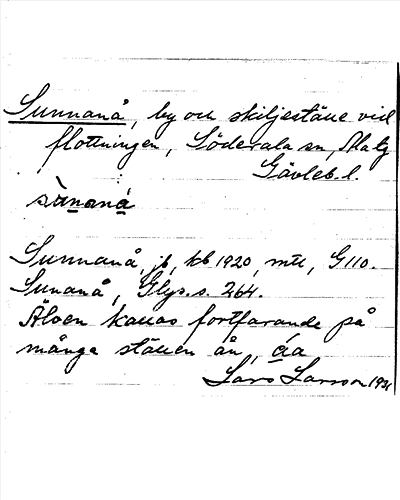 Sunnanå, by och skiljeställe vid
flottningen, Söderala sn, Ala tg
Gävleb. l.
sùnaná
Sunnanå, jb, kb 1920, mtl, G110.
Sunanå, Glys. s. 264.
Älven kallas fortfarande på
många ställen ån, áa
Lars Larsson